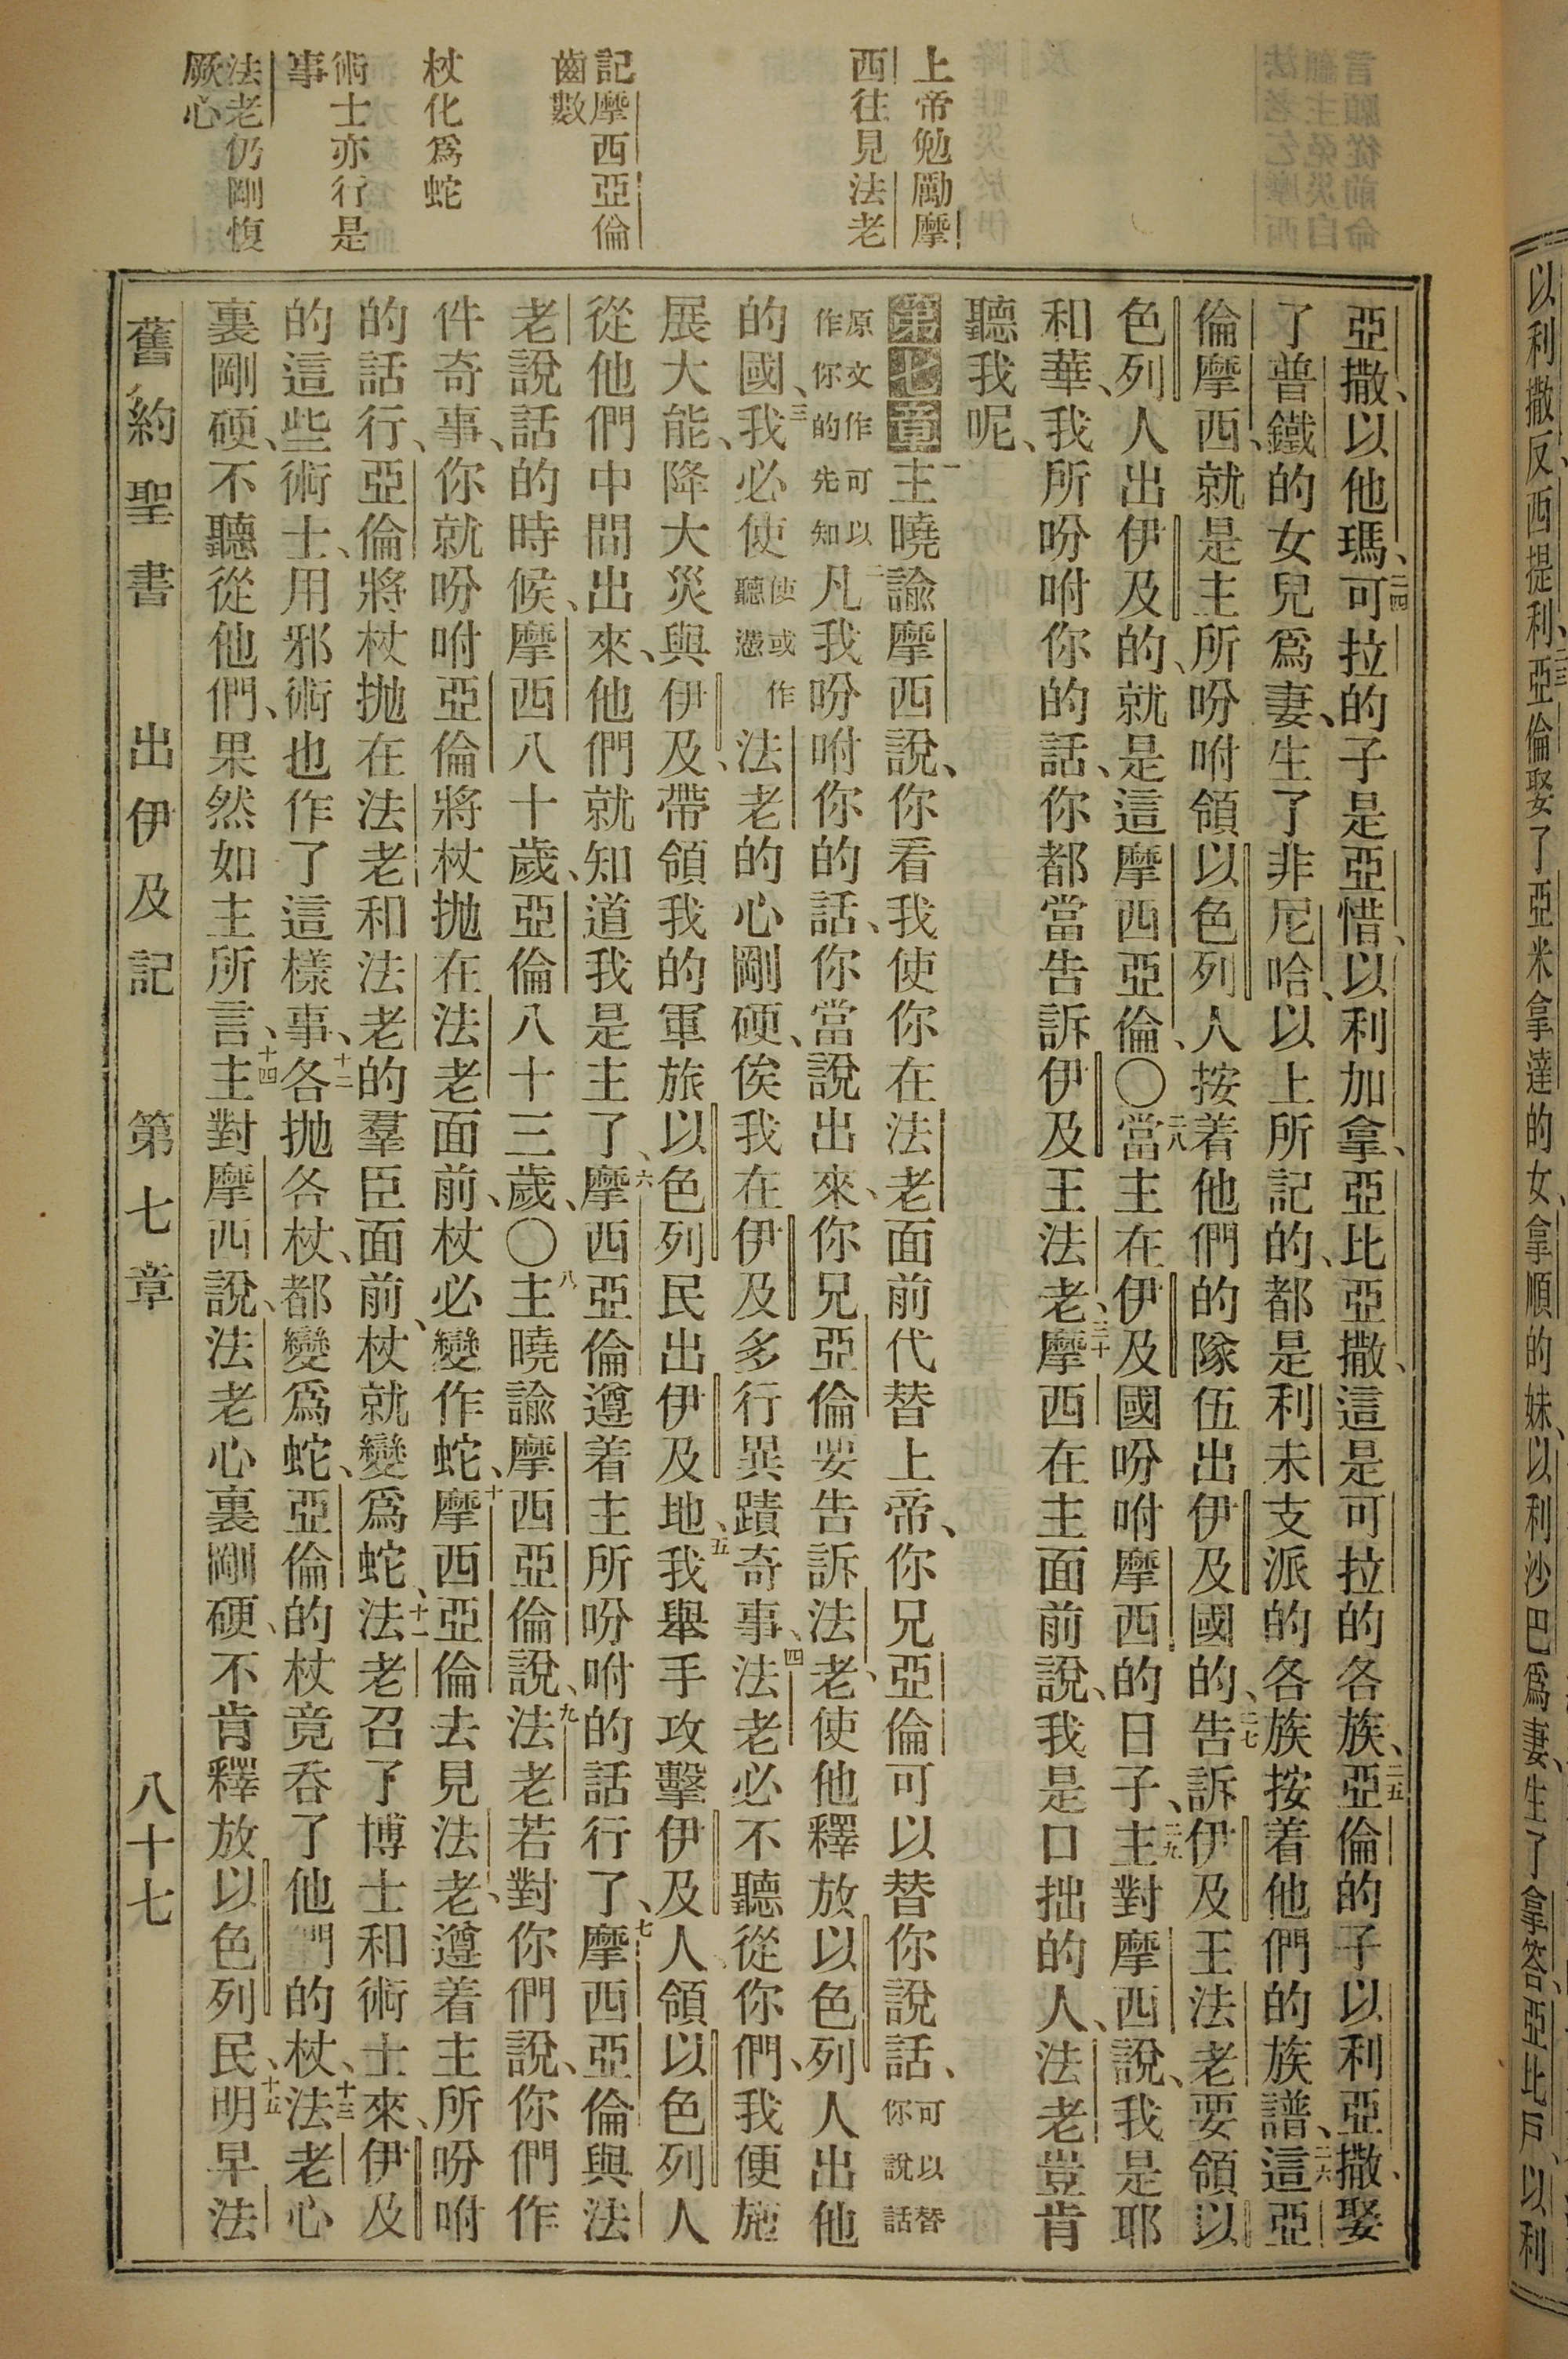 上帝勉勵摩
西往見法老
記摩西亞倫
齒數
杖化爲蛇
術士亦行是
事
法老仍剛愎
厥心
亞撒、以他瑪、二四可拉的子是亞惜、以利加拿、亞比亞撒、這是可拉的各族、二五亞倫的子以利亞撒、娶
了普鐵的女兒爲妻、生了非尼哈、以上所記的、都是利未支派的各族按着他們的族譜、二六這亞
倫摩西、就是主所吩咐領以色列人按着他們的隊伍出伊及國的、二七告訴伊及王法老要領以
色列人出伊及的、就是這摩西亞倫、〇二八當主在伊及國吩咐摩西的日子、二九主對摩西說、我是耶
和華、我所吩咐你的話、你都當告訴伊及王法老、三十摩西在主面前說、我是口拙的人、法老豈肯
聽我呢、
第七章 一主曉諭摩西說、你看我使你在法老面前代替上帝、你兄亞倫可以替你說話、可以替你說話
原文作可以作你的先知二凡我吩咐你的話、你當說出來、你兄亞倫要告訴法老、使他釋放以色列人出他
的國、三我必使使或作聽憑法老的心剛硬、俟我在伊及多行異蹟奇事、四法老必不聽從你們、我便施
展大能、降大災與伊及、帶領我的軍旅以色列民出伊及地、五我舉手攻擊伊及人、領以色列人
從他們中間出來、他們就知道我是主了、六摩西亞倫遵着主所吩咐的話行了、七摩西亞倫與法
老說話的時候、摩西八十歲、亞倫八十三歲、〇八主曉諭摩西亞倫說、九法老若對你們說、你們作
件奇事、你就吩咐亞倫將杖拋在法老面前、杖必變作蛇、十摩西亞倫去見法老、遵着主所吩咐
的話行、亞倫將杖拋在法老和法老的羣臣面前、杖就變爲蛇、十一法老召了博士和術士來、伊及
的這些術士、用邪術也作了這樣事、十二各拋各杖、都變爲蛇、亞倫的杖竟吞了他們的杖、十三法老心
裏剛硬、不聽從他們、果然如主所言、十四主對摩西說、法老心裏剛硬、不肯釋放以色列民、十五明早法
舊約聖書 出伊及記 第七章 八十七
以利撒反、西提利、二三亞倫娶了亞米拿達的女、拿順的妹、以利沙巴爲妻、生了拿答、亞比戶、以利